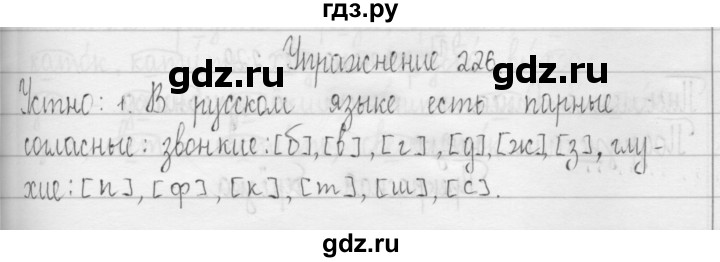 гдз.ру
Упражнение 226
gdz.ru gdz.ru
Устно: 1. В русском языке есть парные
согласные: звонкие: [б], [в], [г], [д], [ж], [з], глу-
хие: [п], [ф], [к], [т], [ш], [с].
gdz.ru gdz.ru
gdz.ru